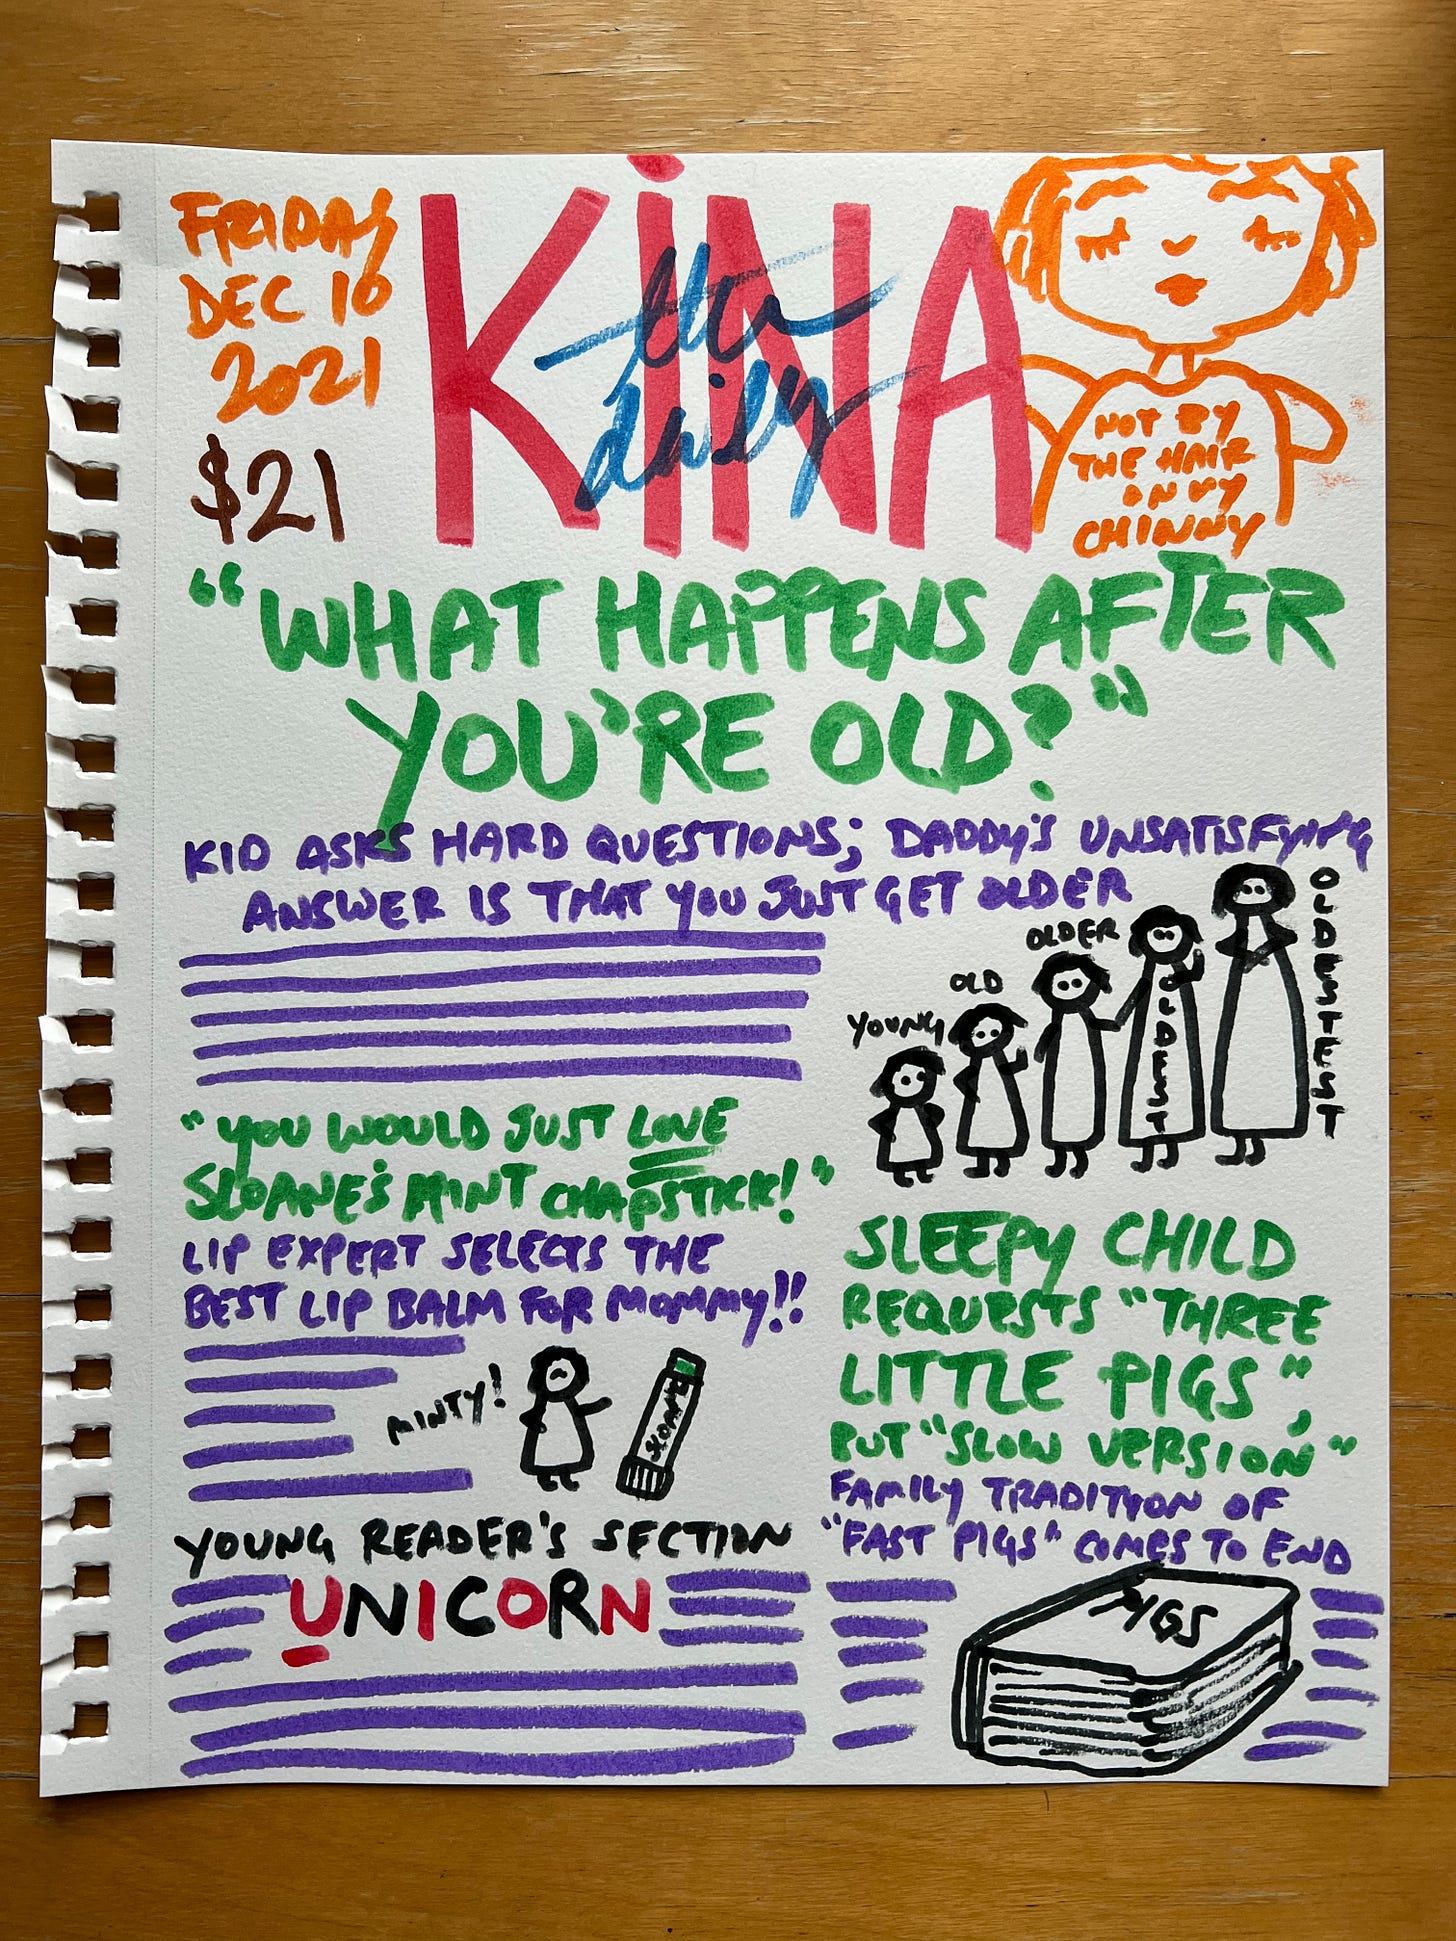 FRIDAY
DEC 10
2021
$21
KINA
the
daily
NOT BY
THE HAIR
ON MY
CHINNY
"WHAT HAPPENS AFTER
YOU'RE OLD?"
KID ASKS HARD QUESTIONS; DADDY'S UNSATISFYING
ANSWER IS THAT YOU JUST GET OLDER
YOUNG
OLD
OLDER
"YOU WOULD JUST LOVE
SLOANE'S MINT CHAPSTICK!"
LIP EXPERT SELECTS THE
BEST LIP BALM FOR MOMMY!!
MINTY!
SLOANE
YOUNG READER'S SECTION
UNICORN
SLEEPY CHILD
REQUESTS "THREE
LITTLE PIGS",
BUT "SLOW VERSION"
FAMILY TRADITION OF
"FAST PIGS" COMES TO END
PIGS